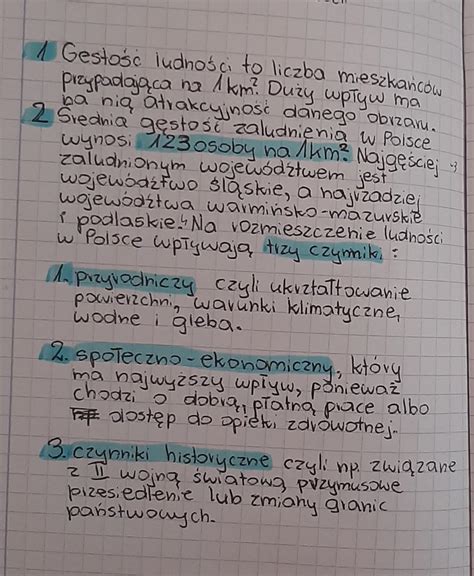 1 Gęstość ludności to liczba mieszkańców
przypadająca na 1km². Duży wpływ ma
na nią atrakcyjność danego obrzaru.
2 Średnia gęstość zaludnienia w Polsce
wynosi 123 osoby na 1km². Najgęściej →
zaludnionym województwem jest
województwo śląskie, a najrzadziej
województwa warmińsko-mazurskie
i podlaskie. Na rozmieszczenie ludności
w Polsce wpływają trzy czynniki:
1. przyrodniczy czyli ukształtowanie
powierzchni, warunki klimatyczne,
wodne i gleba.
2. społeczno-ekonomiczny, który
ma najwyższy wpływ, ponieważ
chodzi o dobrą, płatną pracę albo
dostęp do opieki zdrowotnej.
3. czynniki historyczne czyli np. związane
z II wojną światową przymusowe
przesiedlenie lub zmiany granic
państwowych.